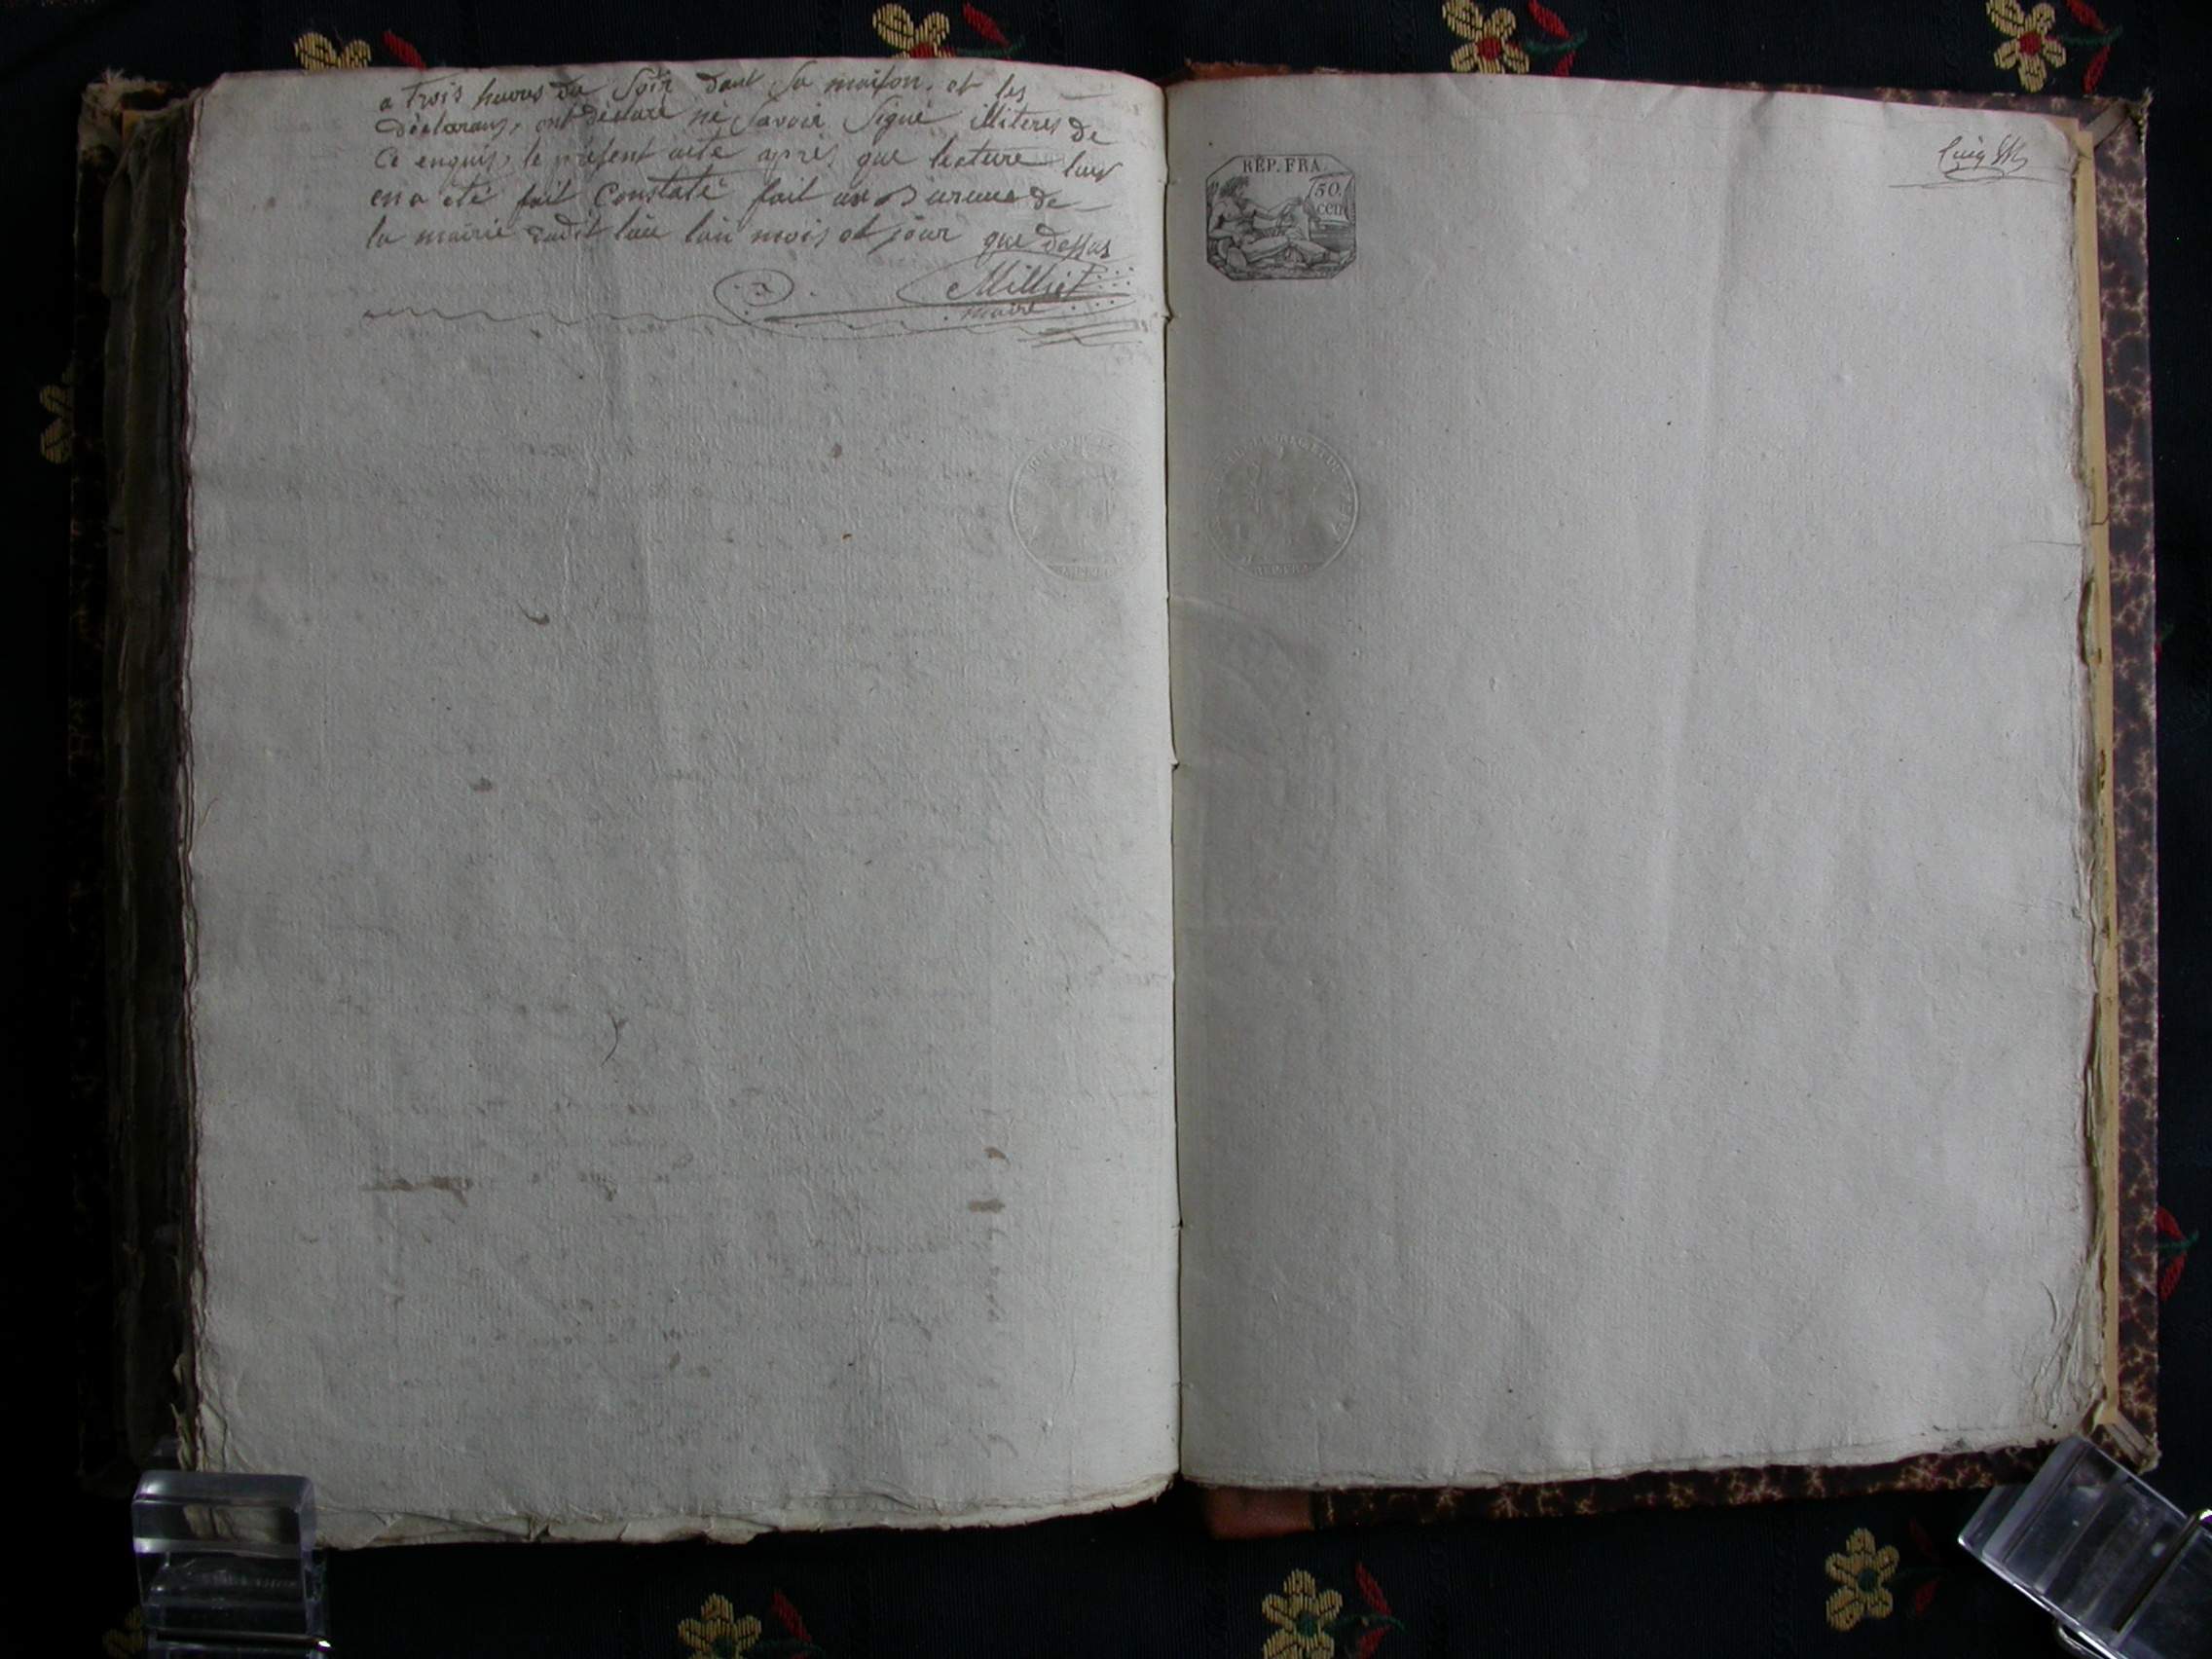 a trois heures du Soir dant Sa maison. et les
déclarans, ont déclaré ne Savoir Signé illiterés de
Ce enquis, le présent acte après que lecture leur
en a été fait Constaté fait au Bureau de
la mairie audit lieu l'an mois et jour que dessus
Milliet
maire
RÉP. FRA
50.
cen